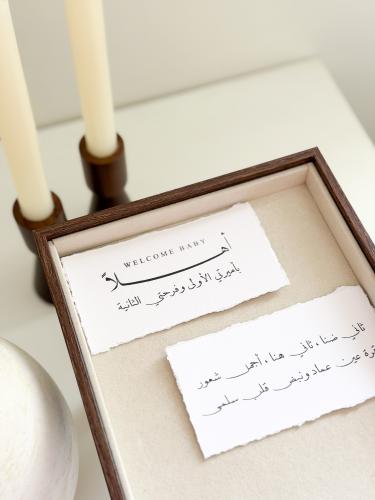 WELCOME BABY
أهلاً
بأميرتي الأولى وفرحتي الثانية
ثاني ضنا، ثاني هنا، أجمل شعور
قرة عين عماد ونبض قلب سلمى